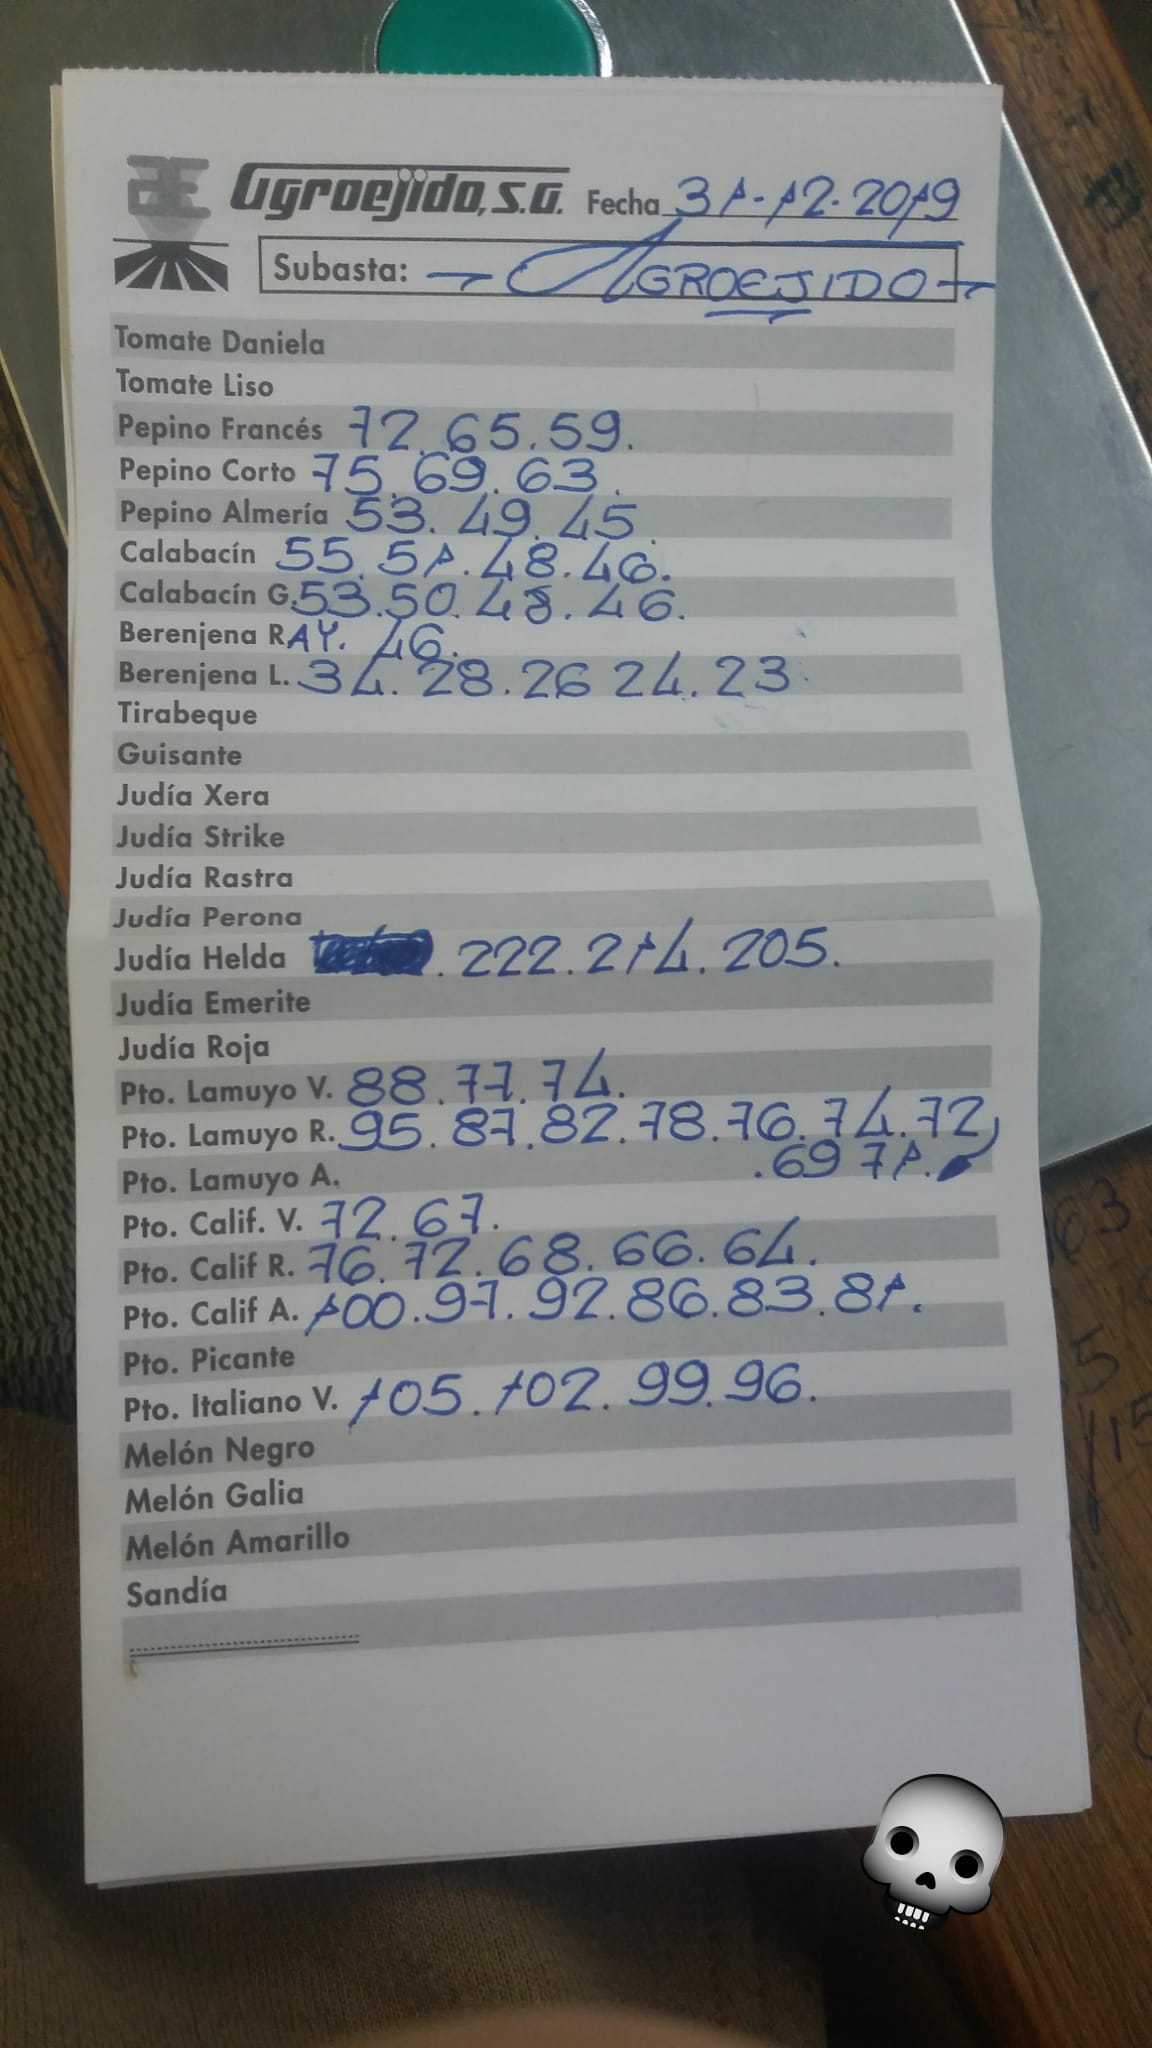 Agroejido, S.A. Fecha 31-12-2019
Subasta: - AGROEJIDO -
Tomate Daniela
Tomate Liso
Pepino Francés 72. 65. 59.
Pepino Corto 75. 69. 63.
Pepino Almería 53. 49. 45.
Calabacín 55. 51. 48. 46.
Calabacín G. 53. 50. 48. 46.
Berenjena RAY. 46.
Berenjena L. 34. 28. 26 24. 23.
Tirabeque
Guisante
Judía Xera
Judía Strike
Judía Rastra
Judía Perona
Judía Helda . 222. 214. 205.
Judía Emerite
Judía Roja
Pto. Lamuyo V. 88. 77. 74.
Pto. Lamuyo R. 95. 87. 82. 78. 76. 74. 72
. 69 71.
Pto. Lamuyo A.
Pto. Calif. V. 72. 67.
Pto. Calif R. 76. 72. 68. 66. 64.
Pto. Calif A. 100. 97. 92. 86. 83. 81.
Pto. Picante
Pto. Italiano V. 105. 102. 99. 96.
Melón Negro
Melón Galia
Melón Amarillo
Sandía